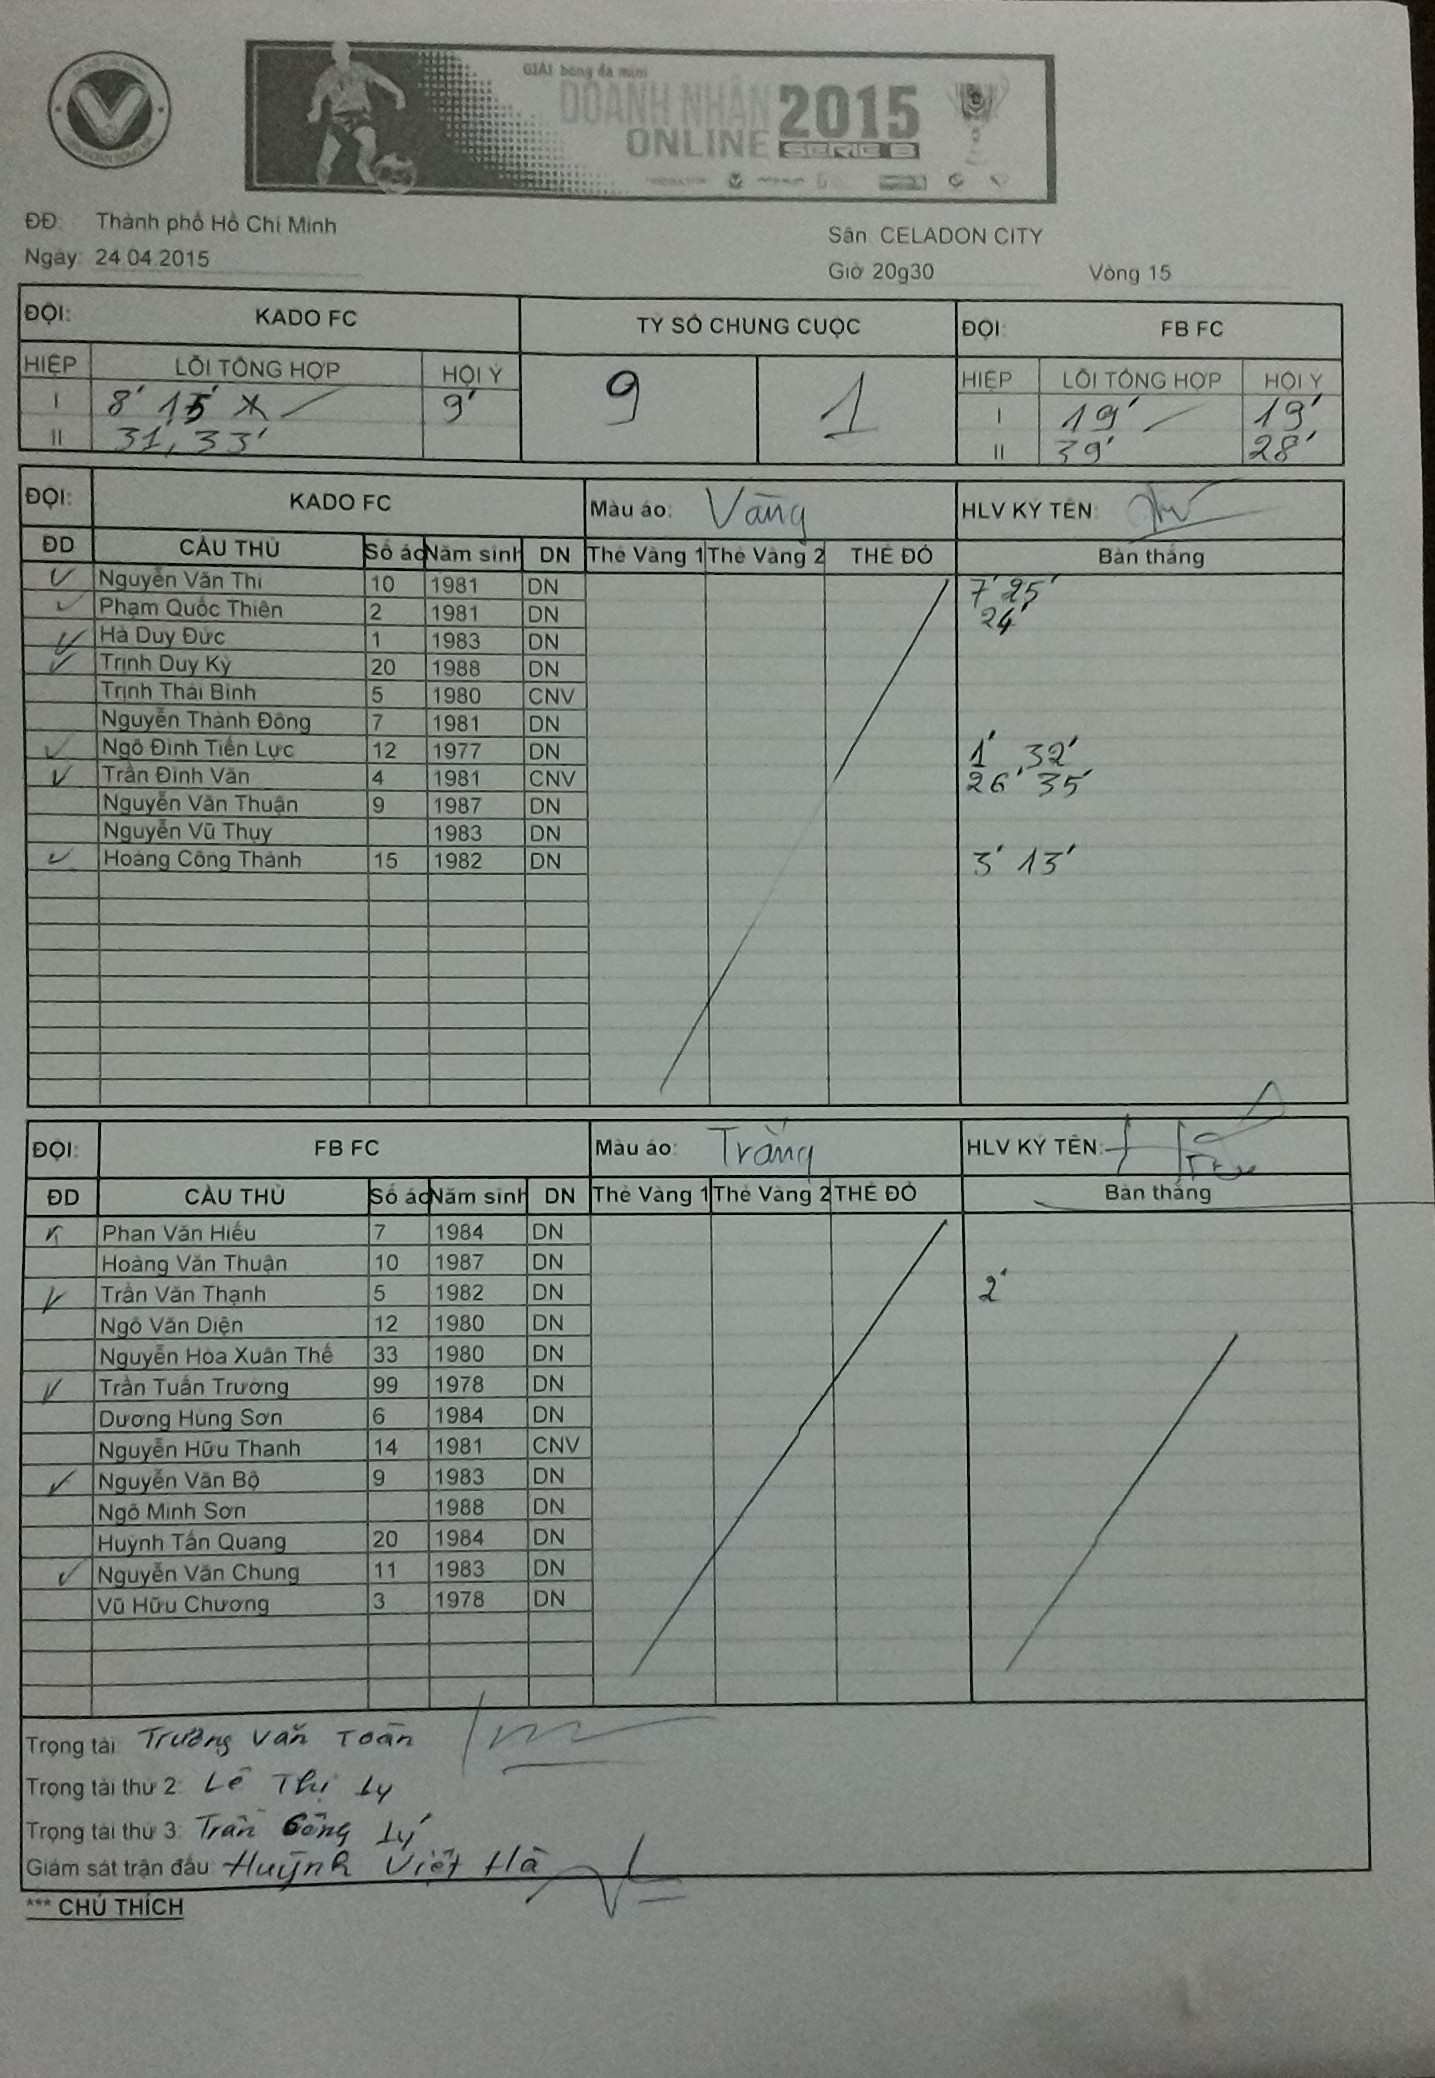 GIẢI bóng đá mini
DOANH NHÂN 2015
ONLINE SERIE B
ĐĐ: Thành phố Hồ Chí Minh
Sân CELADON CITY
Ngày: 24 04 2015
Giờ 20g30 Vòng 15
ĐỘI: KADO FC TỶ SỐ CHUNG CUỘC ĐỘI: FB FC
HIỆP LỖI TỔNG HỢP HỘI Ý 9 1 HIỆP LỖI TỔNG HỢP HỘI Ý
I 8' 15' 9' I 19' 19'
II 31, 33' II 39' 28'
ĐỘI: KADO FC Màu áo: Vàng HLV KÝ TÊN:
ĐD CẦU THỦ Số áo Năm sinh DN Thẻ Vàng 1 Thẻ Vàng 2 THẺ ĐỎ Bàn thắng
Nguyễn Văn Thi 10 1981 DN 7' 25'
Phạm Quốc Thiên 2 1981 DN 24'
Hà Duy Đức 1 1983 DN
Trịnh Duy Kỳ 20 1988 DN
Trịnh Thái Bình 5 1980 CNV
Nguyễn Thành Đông 7 1981 DN
Ngô Đình Tiến Lực 12 1977 DN 1', 32'
Trần Đình Văn 4 1981 CNV 26' 35'
Nguyễn Văn Thuận 9 1987 DN
Nguyễn Vũ Thụy 1983 DN
Hoàng Công Thành 15 1982 DN 3' 13'
ĐỘI: FB FC Màu áo: Trắng HLV KÝ TÊN:
ĐD CẦU THỦ Số áo Năm sinh DN Thẻ Vàng 1 Thẻ Vàng 2 THẺ ĐỎ Bàn thắng
Phan Văn Hiếu 7 1984 DN
Hoàng Văn Thuận 10 1987 DN
Trần Văn Thạnh 5 1982 DN 2'
Ngô Văn Diện 12 1980 DN
Nguyễn Hòa Xuân Thế 33 1980 DN
Trần Tuấn Trường 99 1978 DN
Dương Hùng Sơn 6 1984 DN
Nguyễn Hữu Thanh 14 1981 CNV
Nguyễn Văn Bộ 9 1983 DN
Ngô Minh Sơn 1988 DN
Huỳnh Tấn Quang 20 1984 DN
Nguyễn Văn Chung 11 1983 DN
Vũ Hữu Chương 3 1978 DN
Trọng tài Trường Văn Toàn
Trọng tài thứ 2: Lê Thị Ly
Trọng tài thứ 3: Trần Công Lý
Giám sát trận đấu: Huỳnh Việt Hà
*** CHÚ THÍCH